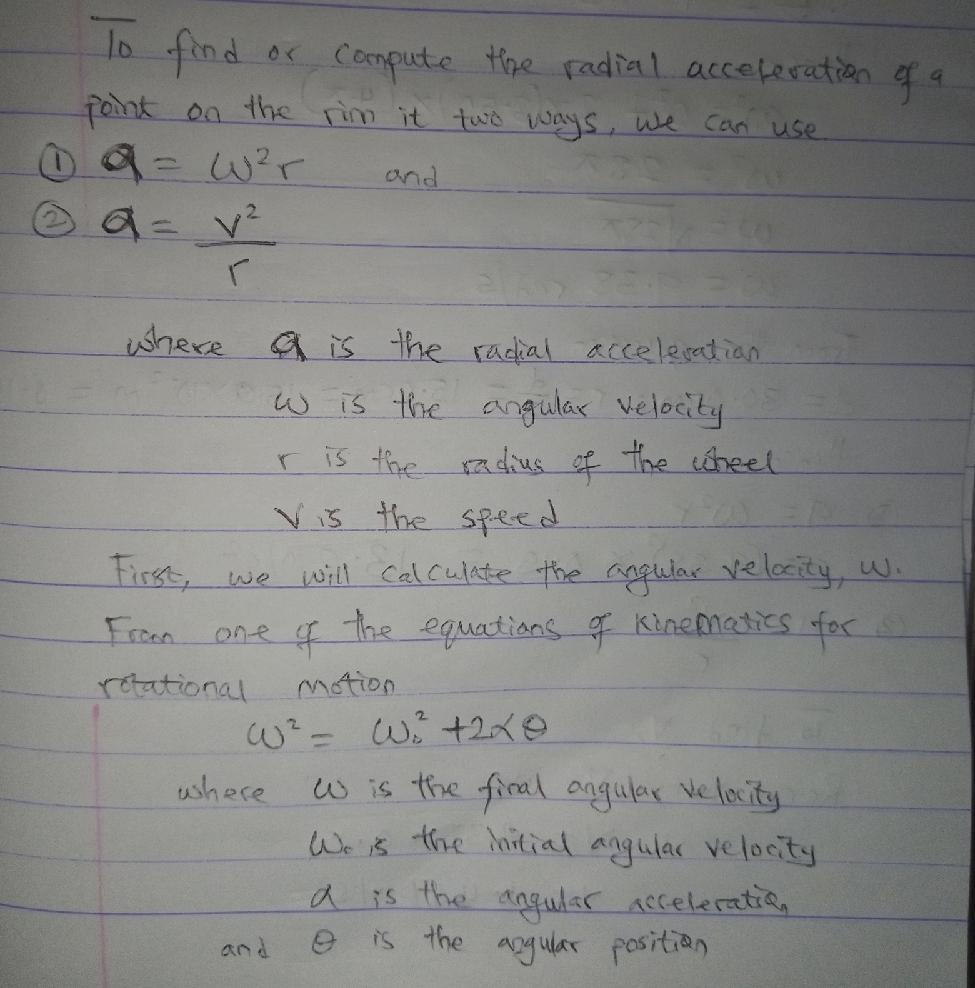 To find or compute the radial acceleration of a
point on the rim it two ways, we can use
① a = ω²r and
② a = v²
r
where a is the radial acceleration
ω is the angular velocity
r is the radius of the wheel
V is the speed
First, we will calculate the angular velocity, ω.
From one of the equations of kinematics for
rotational motion
ω² = ω₀² + 2αθ
where ω is the final angular velocity
ω₀ is the initial angular velocity
α is the angular acceleration
and θ is the angular position